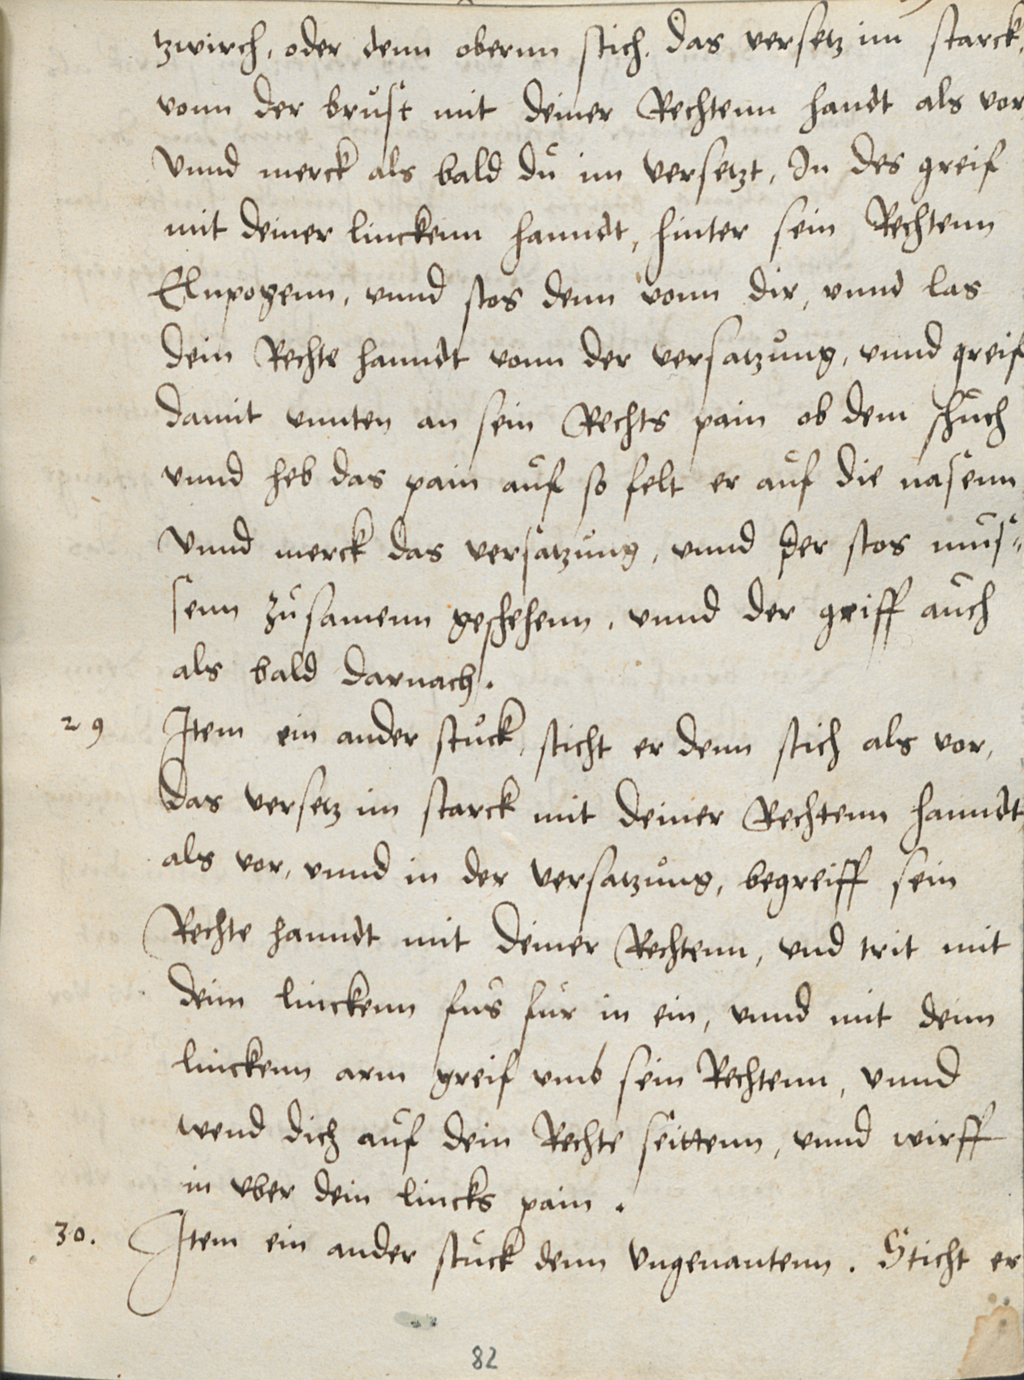 tzwirch, oder denn obernn stich. das versetz im starck,
vonn der brust mit deiner Rechtenn handt als vor
Vnnd merck als bald du im versetzt, In des greif
mit deiner linckenn hanndt, hinter sein Rechtenn
Elnpogenn, vnnd stos denn vonn dir, vnnd las
dein Rechte hanndt vonn der versatzung, vnnd greif
damit vnnten an sein Rechts pain ob dem schuch
vnnd heb das pain auf so felt er auf die nasenn
Vnnd merck das versatzung, vnnd der stos mus=
senn zusamenn geschehenn, vnnd der griff auch
als bald darnach.
29 Item ein ander stuck, sticht er denn stich als vor,
das versetz im starck mit deiner Rechtenn hanndt,
als vor, vnnd in der versatzung, begreiff sein
Rechte hanndt mit deiner Rechtenn, vnd trit mit
deim linckenn fus fur in ein, vnnd mit denn
linckenn arm greif vmb sein Rechtenn, vnnd
wend dich auf dein Rechte seittenn, vnnd wirff
in vber dein lincks pain.
30. Item ein ander stuck denn vngenantenn. Sticht er
82